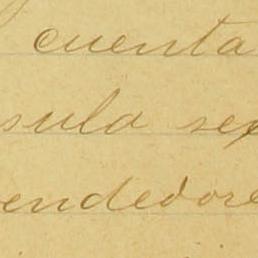 cuenta
sula sex
endedore